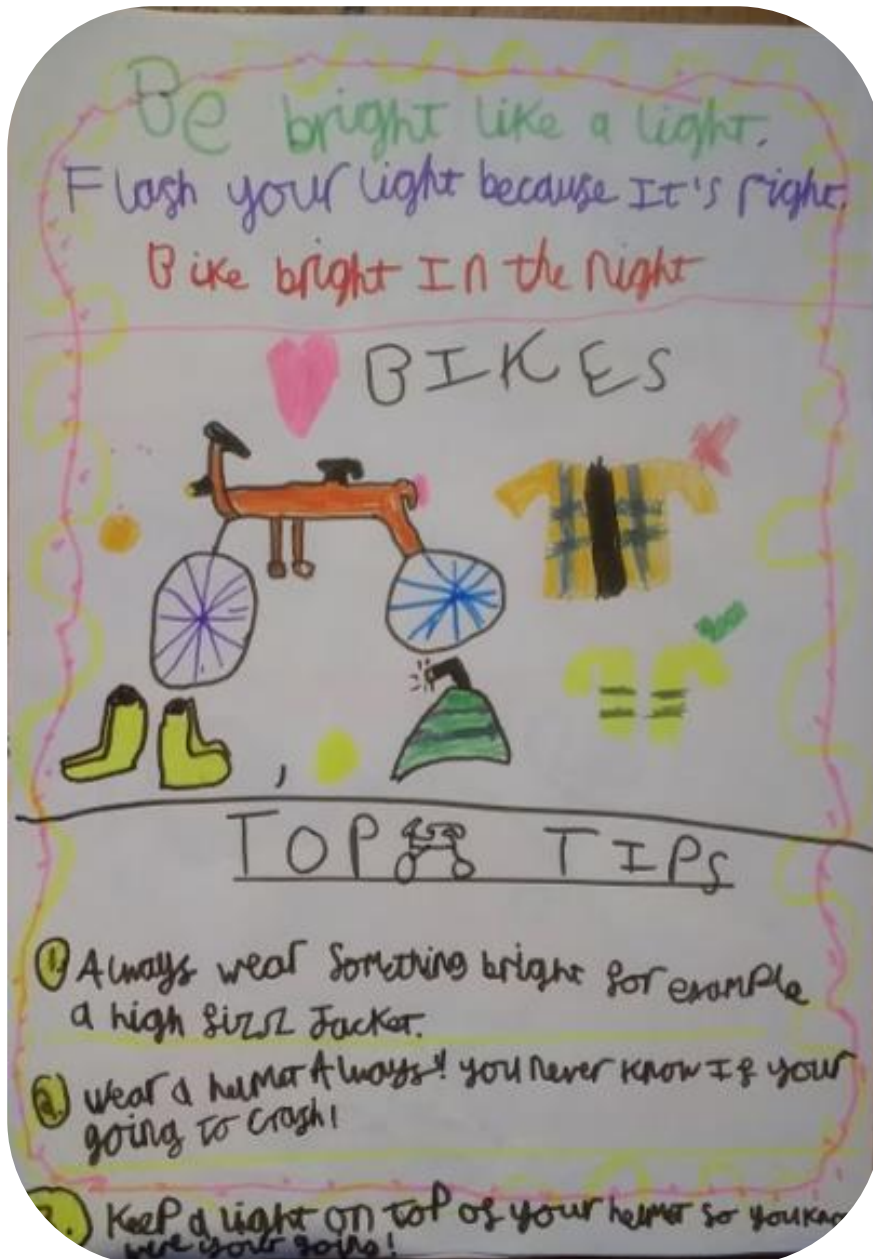 Be bright like a light.
Flash your light because It's right.
Bike bright In the night
BIKES
TOP TIPS
1. Always wear Something bright for example
a high fizz Jacket.
2. Wear a helmet Always! you never know If your
going to crash!
3. Keep a light on top of your helmet so you
were your going!